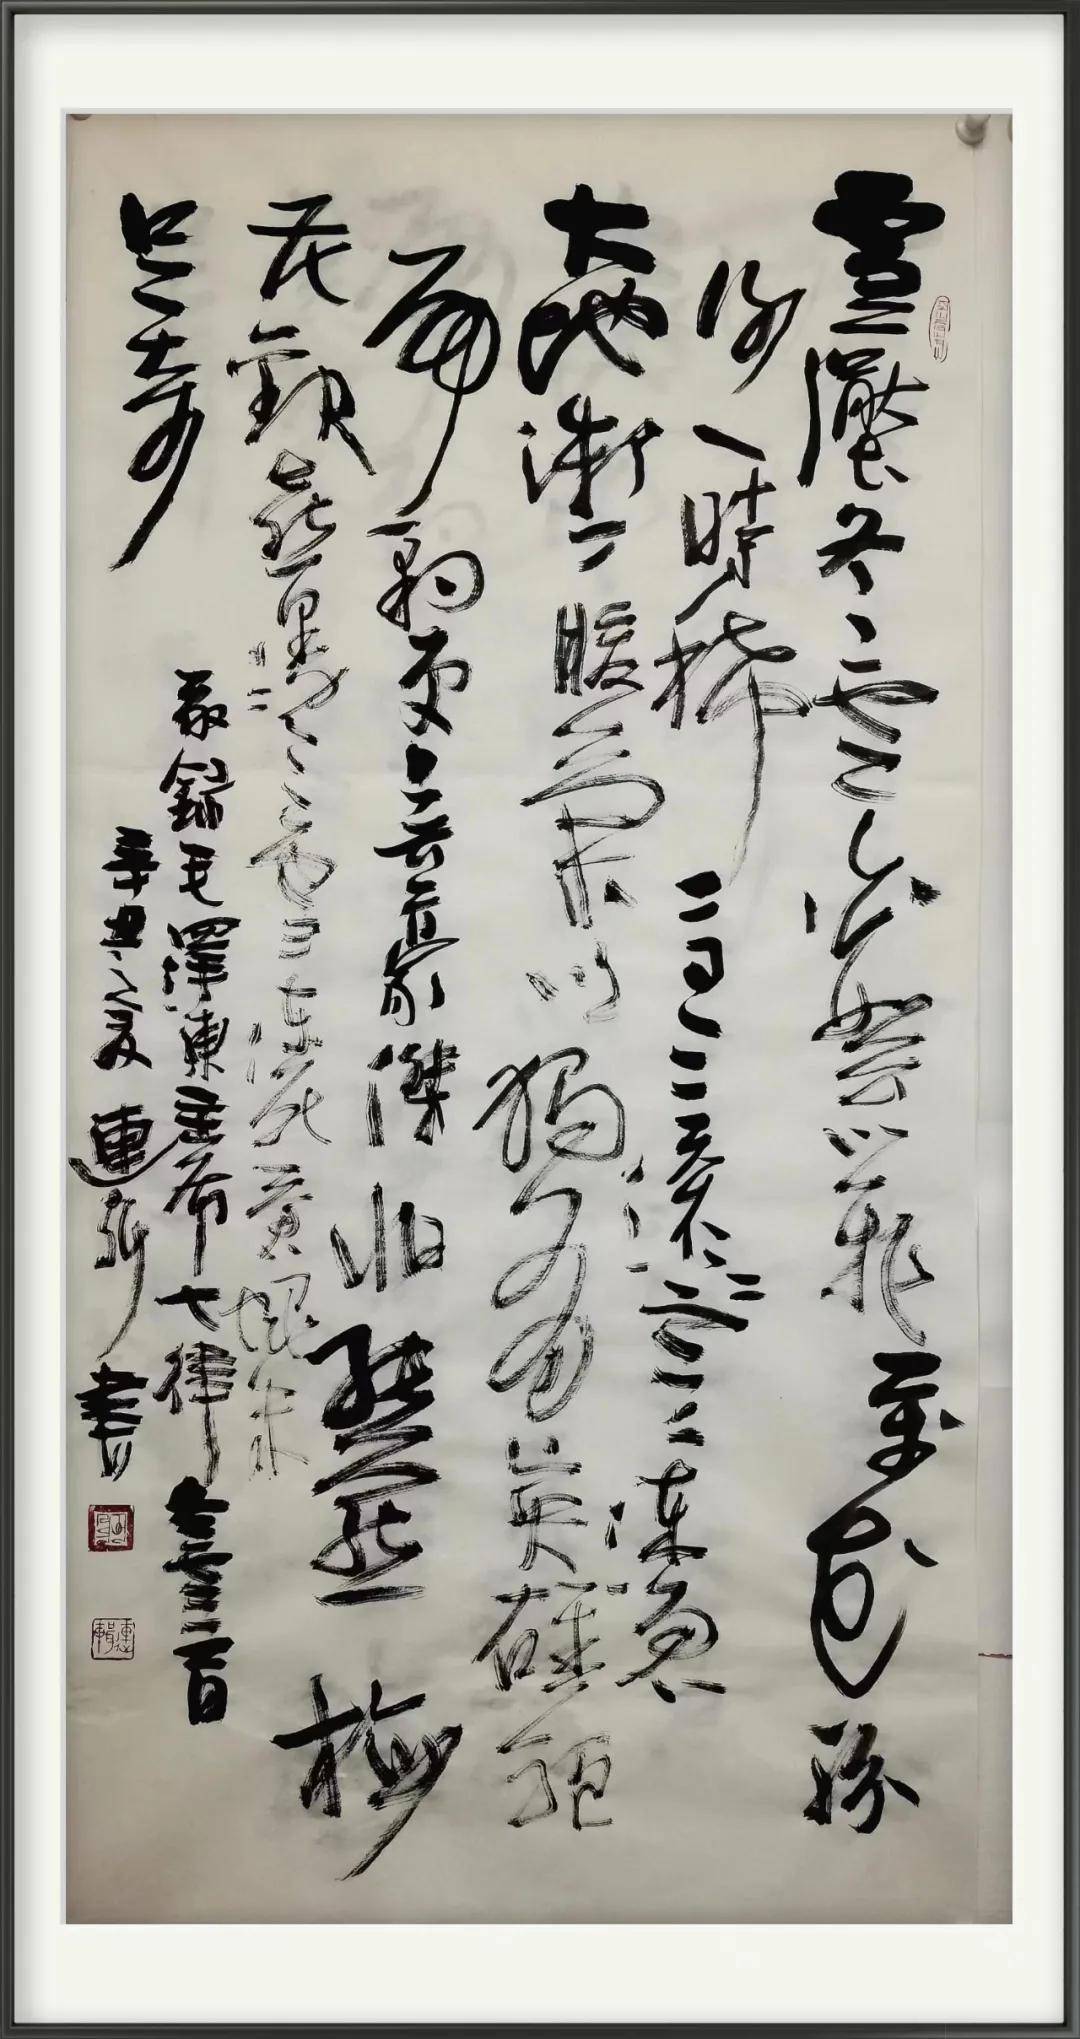 雪壓冬雲白絮飛萬花紛
謝一時稀高天滾滾寒流急
大地微微暖氣吹獨有英雄驅
虎豹更無豪傑怕熊羆梅
花歡喜漫天雪凍死蒼蠅未
足奇
敬錄毛澤東主席七律冬雲一首
辛丑之夏連輯書
連輯